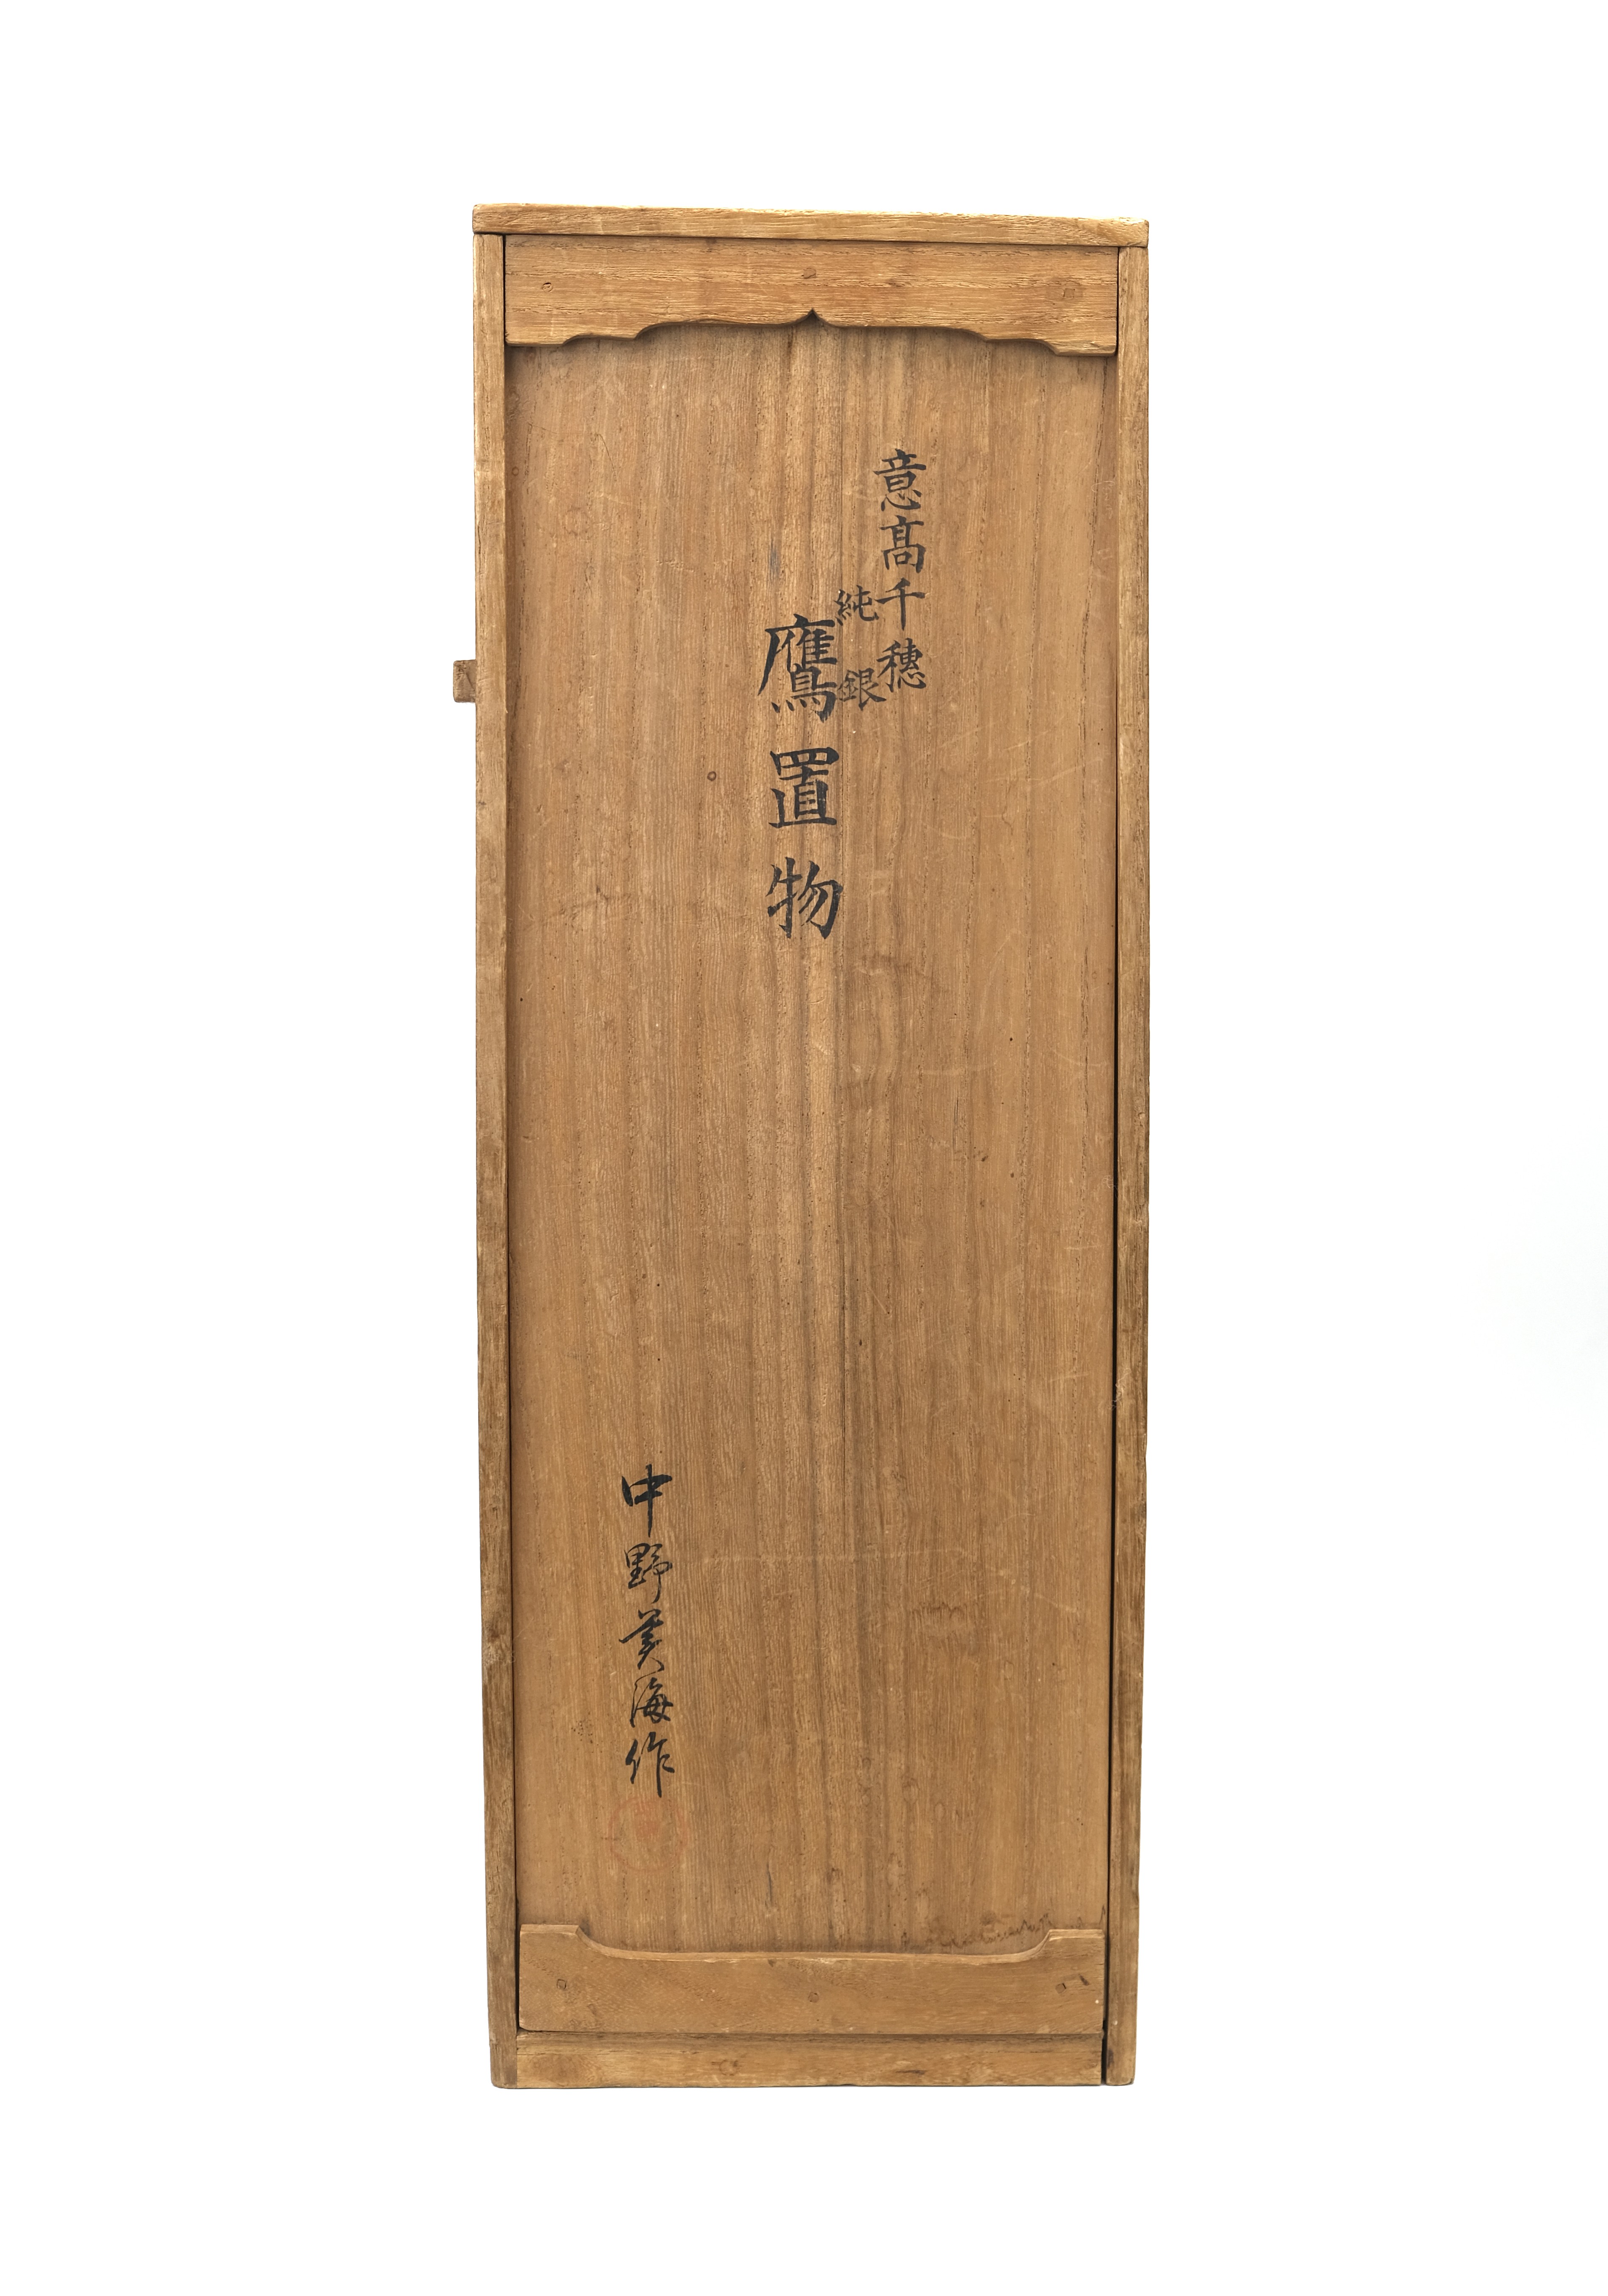 意高千穗
純銀
鷹置物
中野美海作